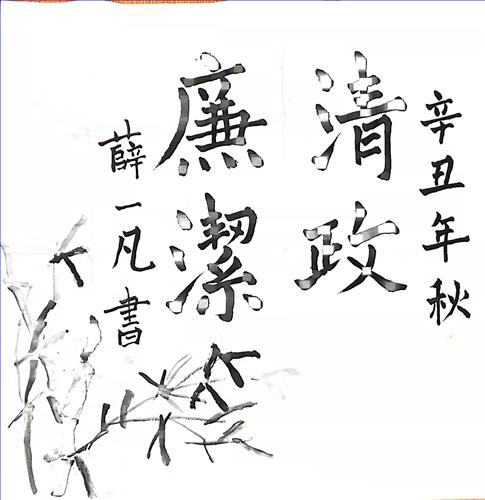 辛丑年秋
清政
廉潔
薛一凡書